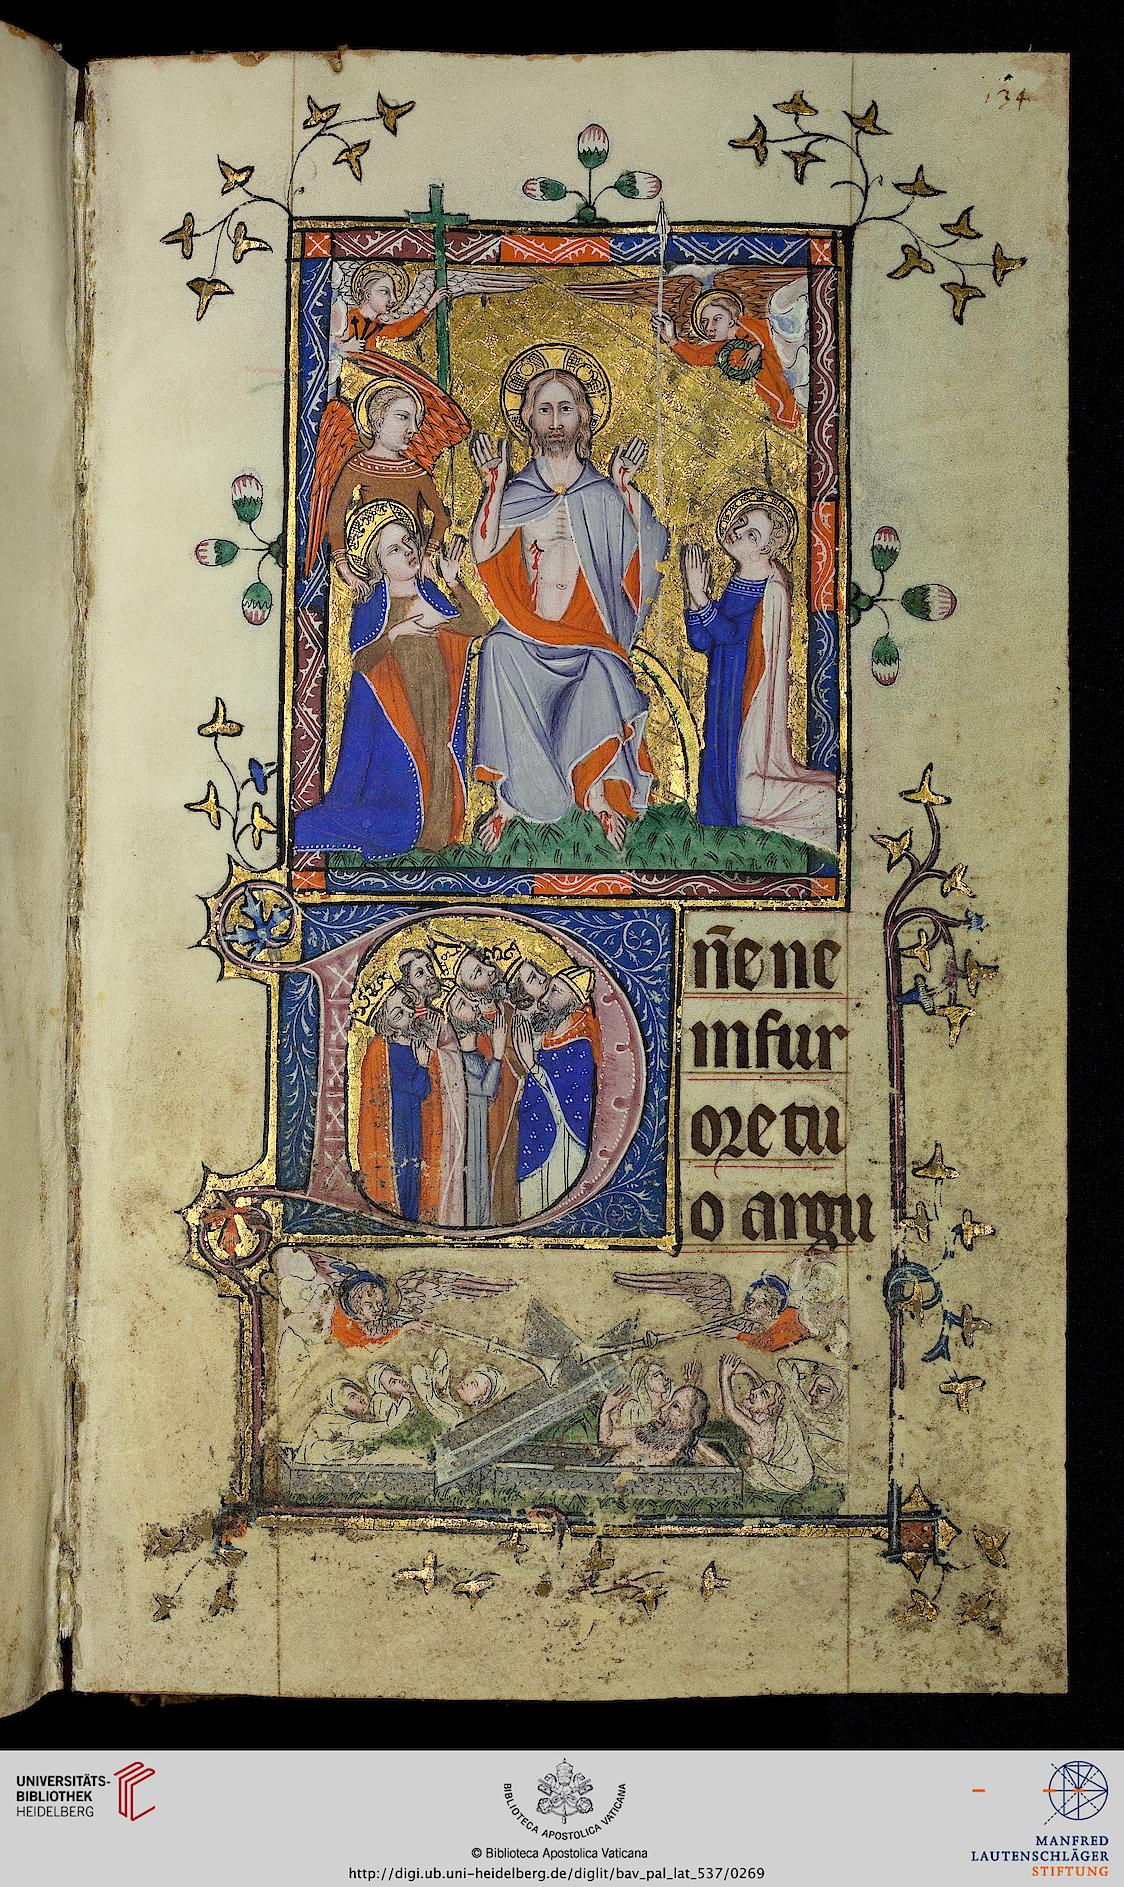 134
n̄e ne
in fur
oꝛe tu
o argu
UNIVERSITÄTS-
BIBLIOTHEK
HEIDELBERG
BIBLIOTECA APOSTOLICA VATICANA
© Biblioteca Apostolica Vaticana
http://digi.ub.uni-heidelberg.de/diglit/bav_pal_lat_537/0269
MANFRED
LAUTENSCHLÄGER
STIFTUNG